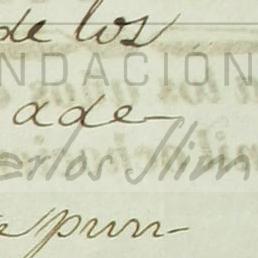 de los
NDACIÓN
ade
Carlos Slim
pun